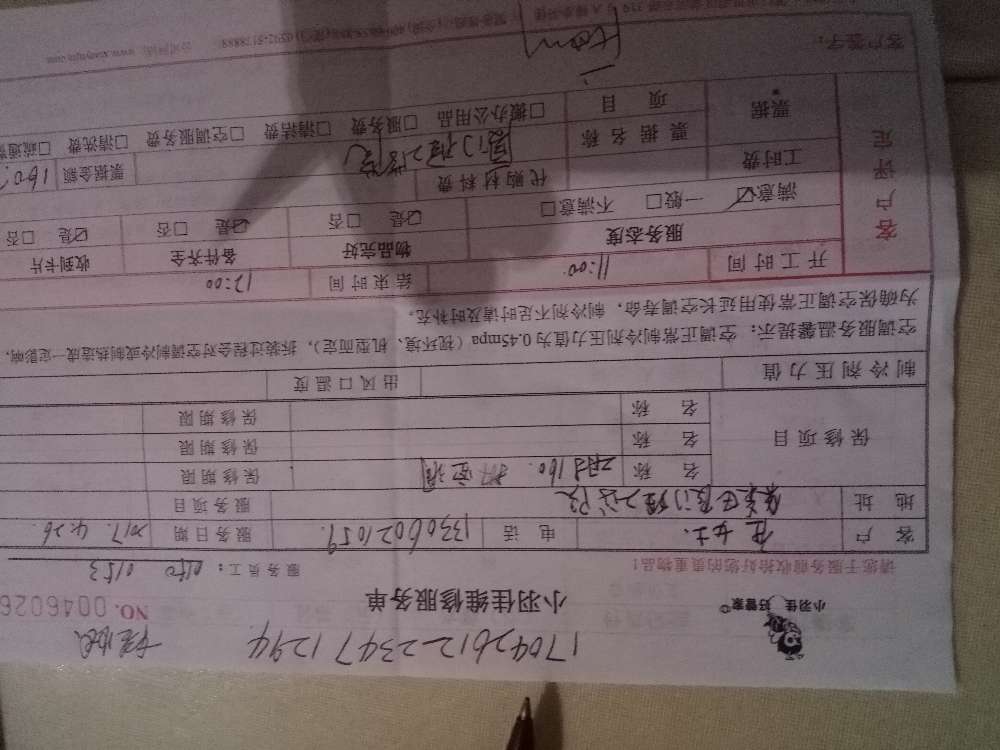 1704261223471294
小羽佳 好管家
小羽佳维修服务单
NO. 0046026
请您于服务前收拾好您的贵重物品!
服务员工: 0150 0153
客户 女士. 电话 13060021059. 服务日期 2017. 4.26
地址 服务项目
保修项目 名称 160. 空调 保修期限
名称 保修期限
名称 保修期限
制冷剂压力值 出风口温度
空调服务温馨提示: 空调正常制冷剂压力值为0.45mpa (视环境、机型而定), 拆装过程会对空调制冷或制热造成一定影响,
为确保空调正常使用延长空调寿命, 制冷剂不足时请及时补充。
开工时间 11:00 结束时间 12:00
客户评定 服务态度 物品完好 备件齐全 收到卡片
满意☑ 一般□ 不满意□ ☑是 □否 ☑是 □否 ☑是 □否
工时费 代购材料费 票据金额 160.
票据 票据名称 厦门理工学院
项目 □搬办公用品 □服务费 □清洁费 □空调服务费 □清洗费 □疏通费
客户签字: